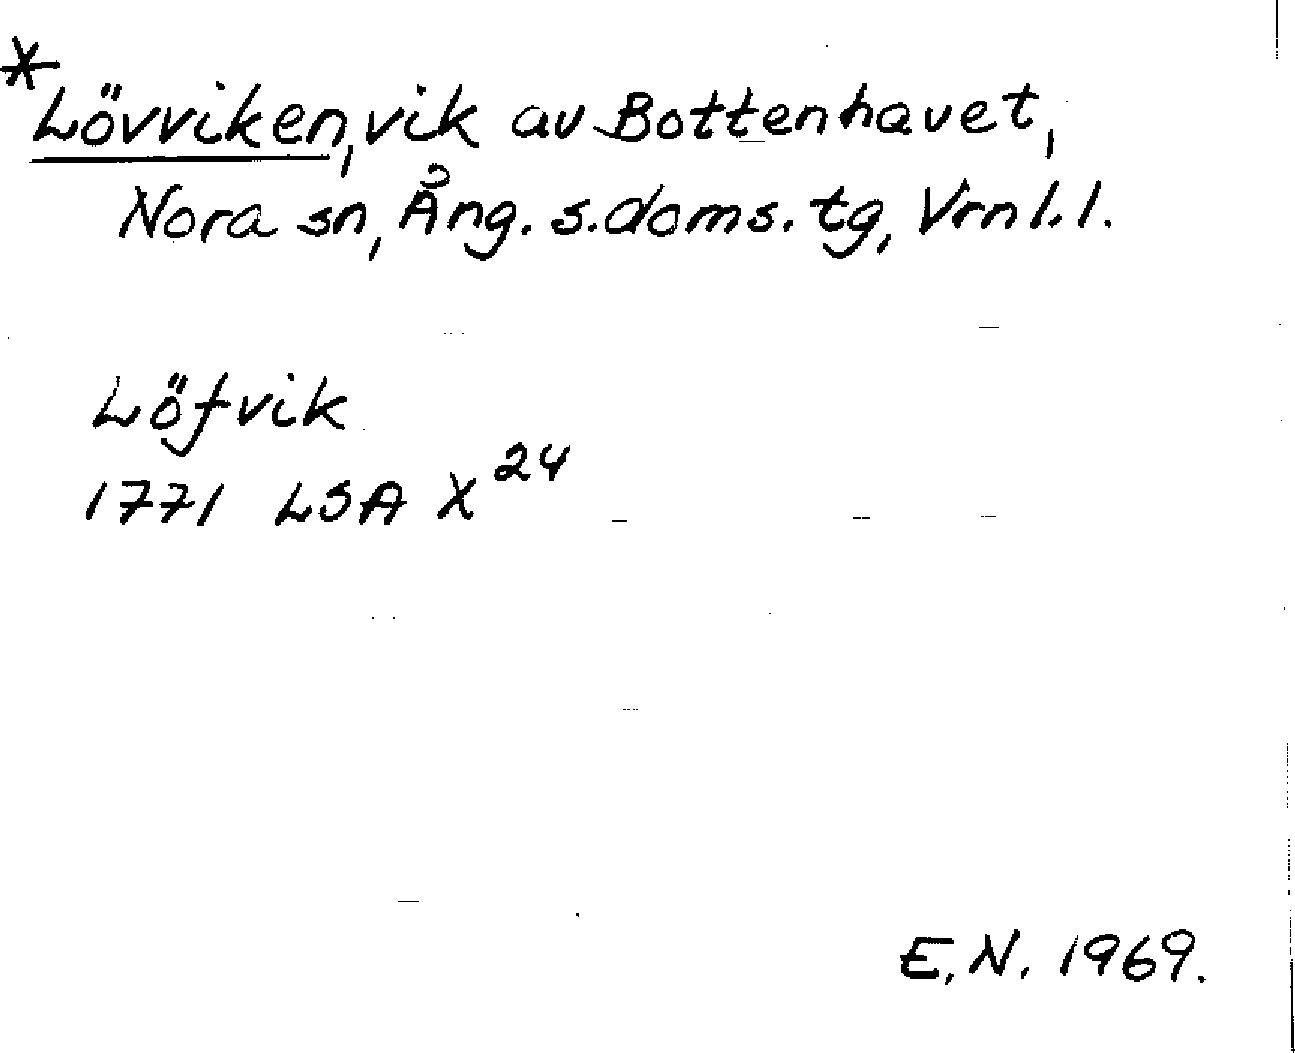 *Lövviken, vik av Bottenhavet,
Nora sn, Ång. s. doms. tg, Vrnl. l.
Löfvik
1771 LSA X 24
E. N. 1969.